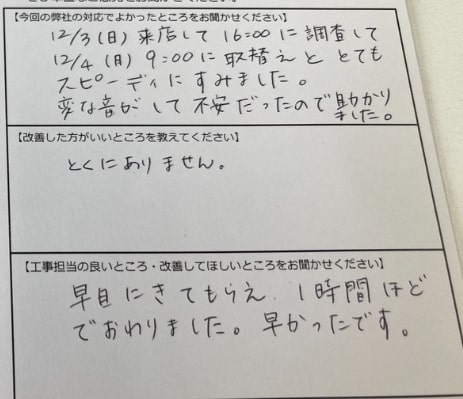 【今回の弊社の対応でよかったところをお聞かせください】
12/3(日) 来店して 16:00 に調査して
12/4 (月) 9:00に 取替えと とても
スピーディにすみました。
変な音がして不安だったので助かり
ました。
【改善した方がいいところを教えてください】
とくにありません。
【工事担当の良いところ・改善してほしいところをお聞かせください】
早目にきてもらえ、1時間ほど
でおわりました。早かったです。